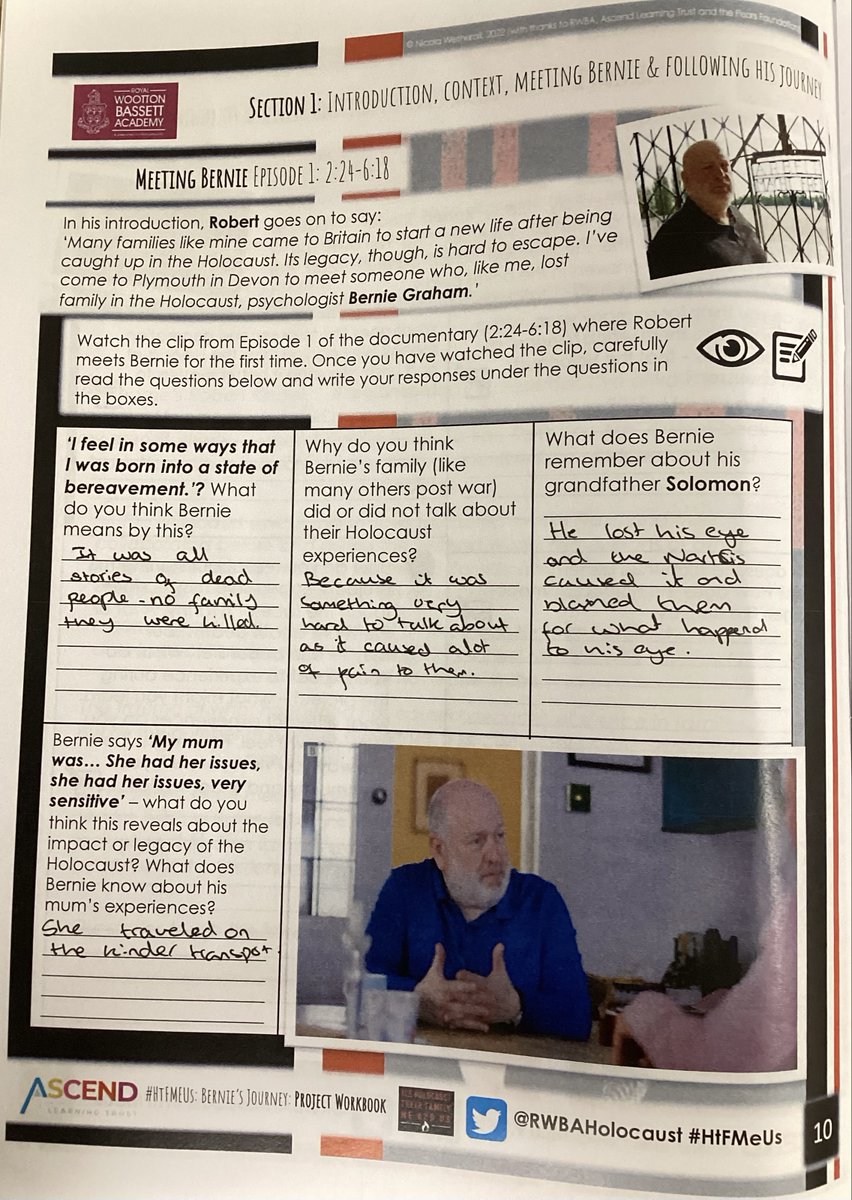 © Nicola Wetherall, 2022 (with thanks to RWBA, Ascend Learning Trust and the Pears Foundation)
ROYAL
WOOTTON
BASSETT
ACADEMY
SECTION 1: INTRODUCTION, CONTEXT, MEETING BERNIE & FOLLOWING HIS JOURNEY
MEETING BERNIE EPISODE 1: 2:24-6:18
In his introduction, Robert goes on to say:
'Many families like mine came to Britain to start a new life after being
caught up in the Holocaust. Its legacy, though, is hard to escape. I've
come to Plymouth in Devon to meet someone who, like me, lost
family in the Holocaust, psychologist Bernie Graham.'
Watch the clip from Episode 1 of the documentary (2:24-6:18) where Robert
meets Bernie for the first time. Once you have watched the clip, carefully
read the questions below and write your responses under the questions in
the boxes.
'I feel in some ways that
I was born into a state of
bereavement.'? What
do you think Bernie
means by this?
It was all
stories of dead
people - no family
they were killed.
Why do you think
Bernie's family (like
many others post war)
did or did not talk about
their Holocaust
experiences?
Because it was
something very
hard to talk about
as it caused alot
of pain to them.
What does Bernie
remember about his
grandfather Solomon?
He lost his eye
and the
caused it and
blamed them
for what happend
to his eye.
Bernie says 'My mum
was... She had her issues,
she had her issues, very
sensitive' – what do you
think this reveals about the
impact or legacy of the
Holocaust? What does
Bernie know about his
mum's experiences?
She traveled on
the kinder transpot
ASCEND
LEARNING TRUST
#HTFMEUS: BERNIE'S JOURNEY: PROJECT WORKBOOK
@RWBAHolocaust #HtFMeUs
10